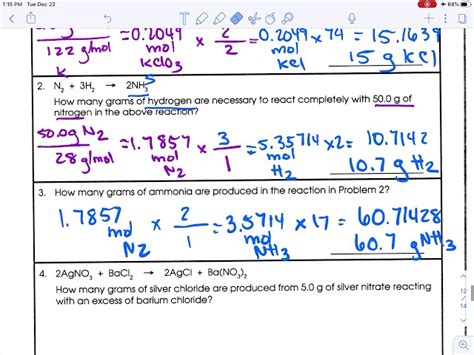 1:15 PM Tue Dec 22
68%
=0.2049 mol KClO3 x 2/2 = 0.2049 mol KCl x 74 = 15.1639
122 g/mol
15 g KCl
2. N₂ + 3H₂ → 2NH₃
How many grams of hydrogen are necessary to react completely with 50.0 g of
nitrogen in the above reaction?
50.0g N2 / 28 g/mol = 1.7857 mol N2 x 3/1 = 5.35714 mol H2 x2= 10.7142
10.7 g H2
3. How many grams of ammonia are produced in the reaction in Problem 2?
1.7857 mol N2 x 2/1 = 3.5714 mol NH3 x 17 = 60.71428
60.7 g NH3
4. 2AgNO₃ + BaCl₂ → 2AgCl + Ba(NO₃)₂
How many grams of silver chloride are produced from 5.0 g of silver nitrate reacting
with an excess of barium chloride?
12
14